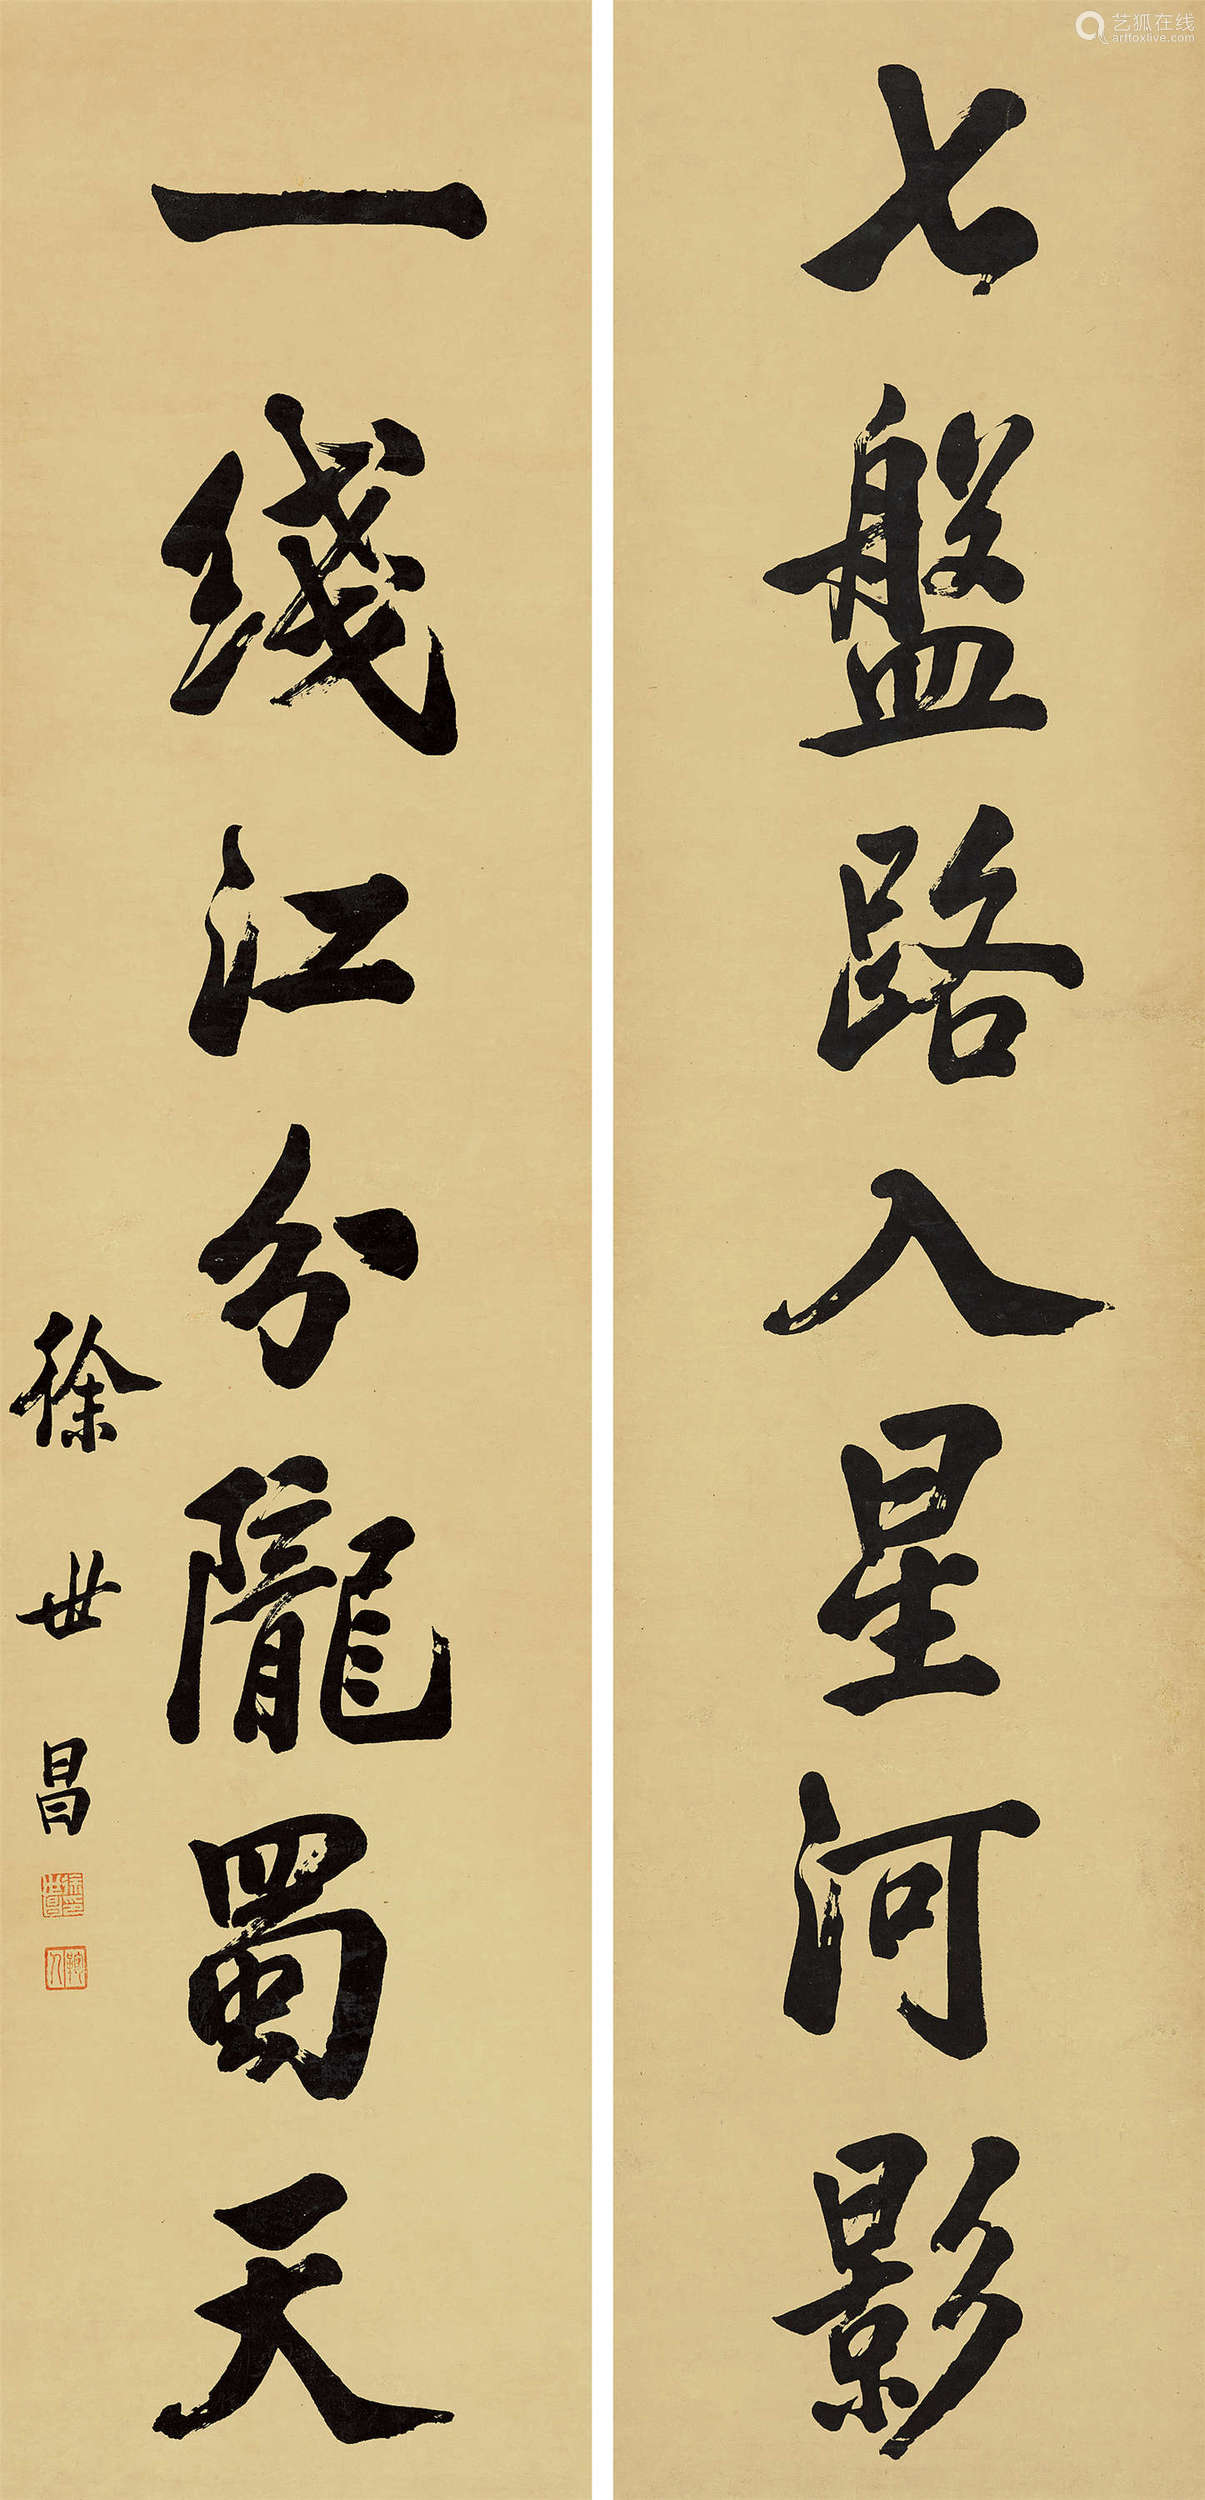 七盤路入星河影
一綫江分隴蜀天
徐世昌
艺狐在线
artfoxlive.com